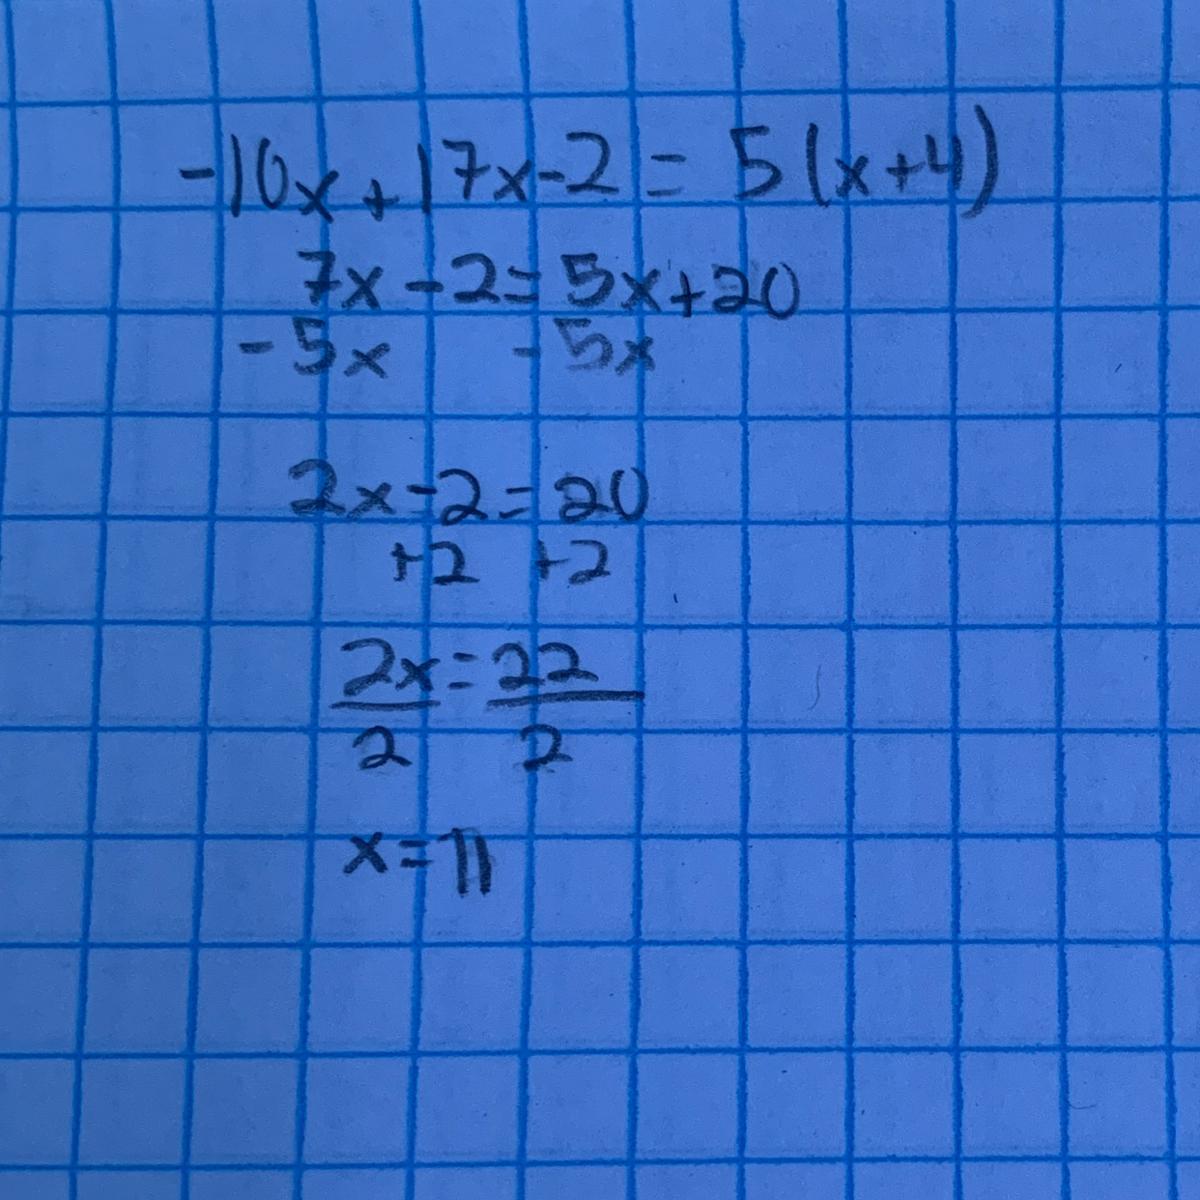 -10x+17x-2=5(x+4)
7x-2=5x+20
-5x -5x
2x-2=20
+2 +2
2x=22
2 2
x=11